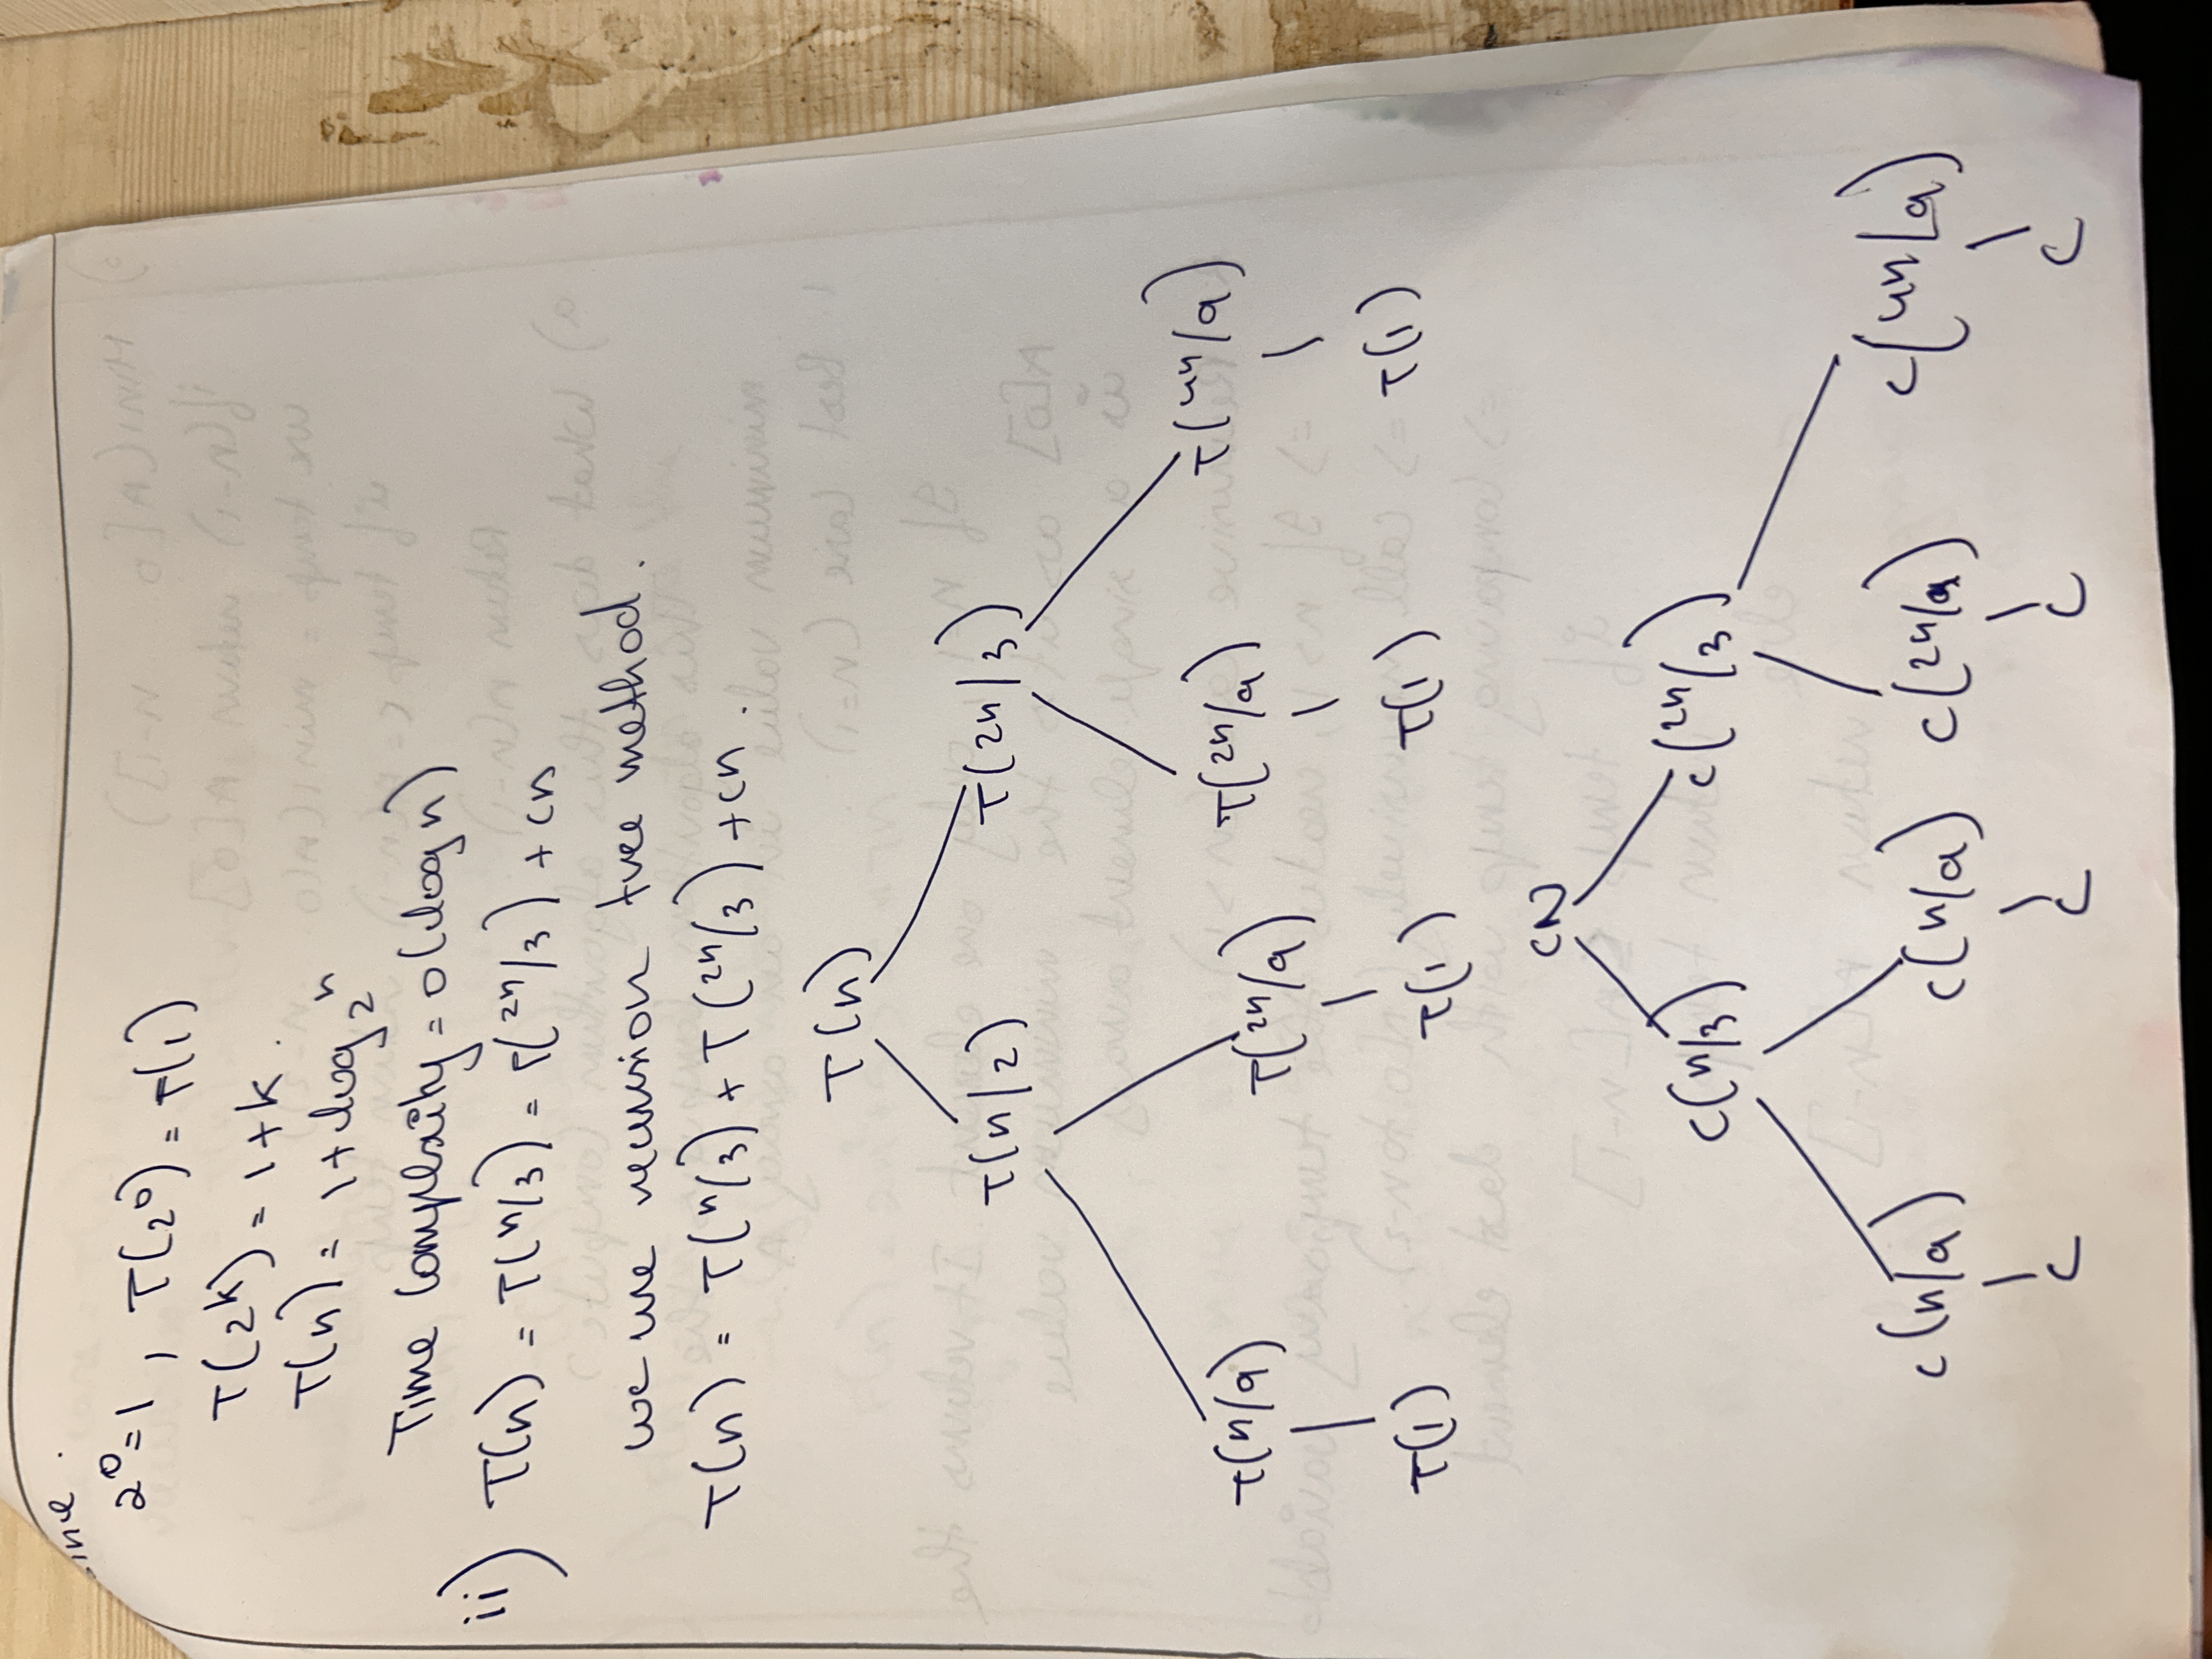 2⁰=1, T(2⁰) = T(1)
T(2ᵏ) = 1+k.
T(n) = 1+log₂ⁿ
Time Complexity = O(log n)
ii) T(n) = T(n/3) = T(2n/3) + cn
we use recursion tree method.
T(n) = T(n/3) + T(2n/3) + cn.
T(n)
T(n/2) T(2n/3)
T(n/9) T(2n/9) T(2n/9) T(4n/9)
T(1) T(1) T(1) T(1)
CN
C(n/3) C(2n/3)
C(n/9) C(n/9) C(2n/9) C(4n/9)
C C C C